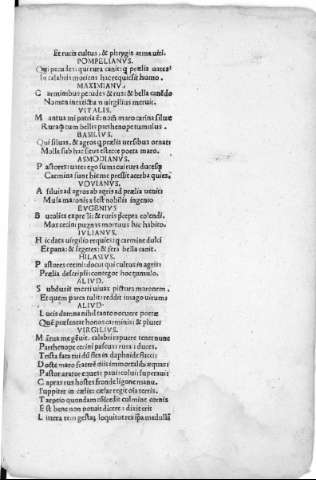 Et ruris cultus, & phrygia arma uiri.
POMPELIANVS.
Qui pecudes: qui rura canit: q prælia uates
In calabris moriens hac requiescit homo.
MAXIMIANV.
C arminibus pecudes & rus: & bella canẽdo
Nomen inextictũ uirgilius merui.
VITALIS.
M antua mi patria ẽ: nomẽ maro carmina siluæ
Ruraq̃ cum bellis parthenope tumulus.
BASILIVS.
Qui siluas, & agros q prælia uersibus ornat
Mole sub hac situs est ecce poeta maro.
ASMODIANVS.
P astorum uates ego sum cui rura ducesq̃
Carmina sunt hic me pressit acerba quies.
VOVIANVS.
A siluis ad agros ab agris ad prælia uenit
Musa maronis est nobilis ingenio
EVGENIVS
B ucolica expressi: & ruris præcepta colendi.
Mox cecini pugnas mortuus hic habito.
IVLIANVS.
H ic data uirgilio requies q carmine dulci
Et pana: & segetes: & fera bella canit.
HILASIVS.
P astores cecini: docui qui cultus in agris
Prælia descripsi: contegor hoc tumulo.
ALIVD.
S ubduxit morti uiuax pictura maronem.
Et quem parca tulit: reddit imago uirum
ALIVD.
L ucis damna nihil tanto nocuere poetæ
Quẽ præsentat honos carminis & plutei
VIRGILIVS.
M antua me genuit. calabri rapuere tenet nunc
Parthenope cecini pascua: rura: duces.
Testa
Docte maro
Pastor arator eques: paui: colui: superaui
C apras rus hostes fronde ligone manu.
Iuppiter in cælis cæsar regit oĩa terris.
T
E st bene non potuit dicere: dixit erit
L